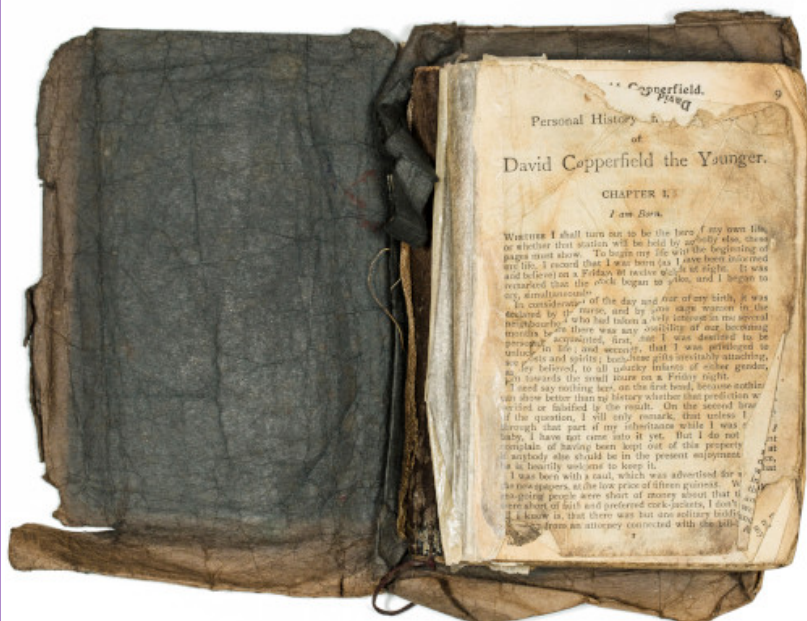 Copperfield. 9
David
Personal History
of
David Copperfield the Younger.
CHAPTER I.
I am Born.
WHETHER I shall turn out to be the hero of my own life,
or whether that station will be held by anybody else, these
pages must show. To begin my life with the beginning of
my life, I record that I was born (as I have been informed
and believe) on a Friday, at twelve o'clock at night. It was
remarked that the clock began to strike, and I began to
cry, simultaneously
In consideration of the day and hour of my birth, it was
declared by the nurse, and by some sage women in the
neighbourhood who had taken a lively interest in me several
months before there was any possibility of our becoming
personally acquainted, first, that I was destined to be
unlucky in life; and secondly, that I was privileged to
see and spirits; both these gifts inevitably attaching,
as they believed, to all unlucky infants of either gender,
born towards the small hours on a Friday night.
I need say nothing here on the first head, because nothing
can show better than my history whether that prediction w
verified or falsified by the result. On the second bra
of the question, I will only remark, that unless I
through that part of my inheritance while I was
baby, I have not come into it yet. But I do not
complain of having been kept out of this property
if anybody else should be in the present enjoyment
he is heartily welcome to keep it.
I was born with a caul, which was advertised for
the newspapers, at the low price of fifteen guineas. W
sea-going people were short of money about that ti
were short of faith and preferred cork-jackets, I don't
I know is, that there was but one solitary biddi
from an attorney connected with the bill-